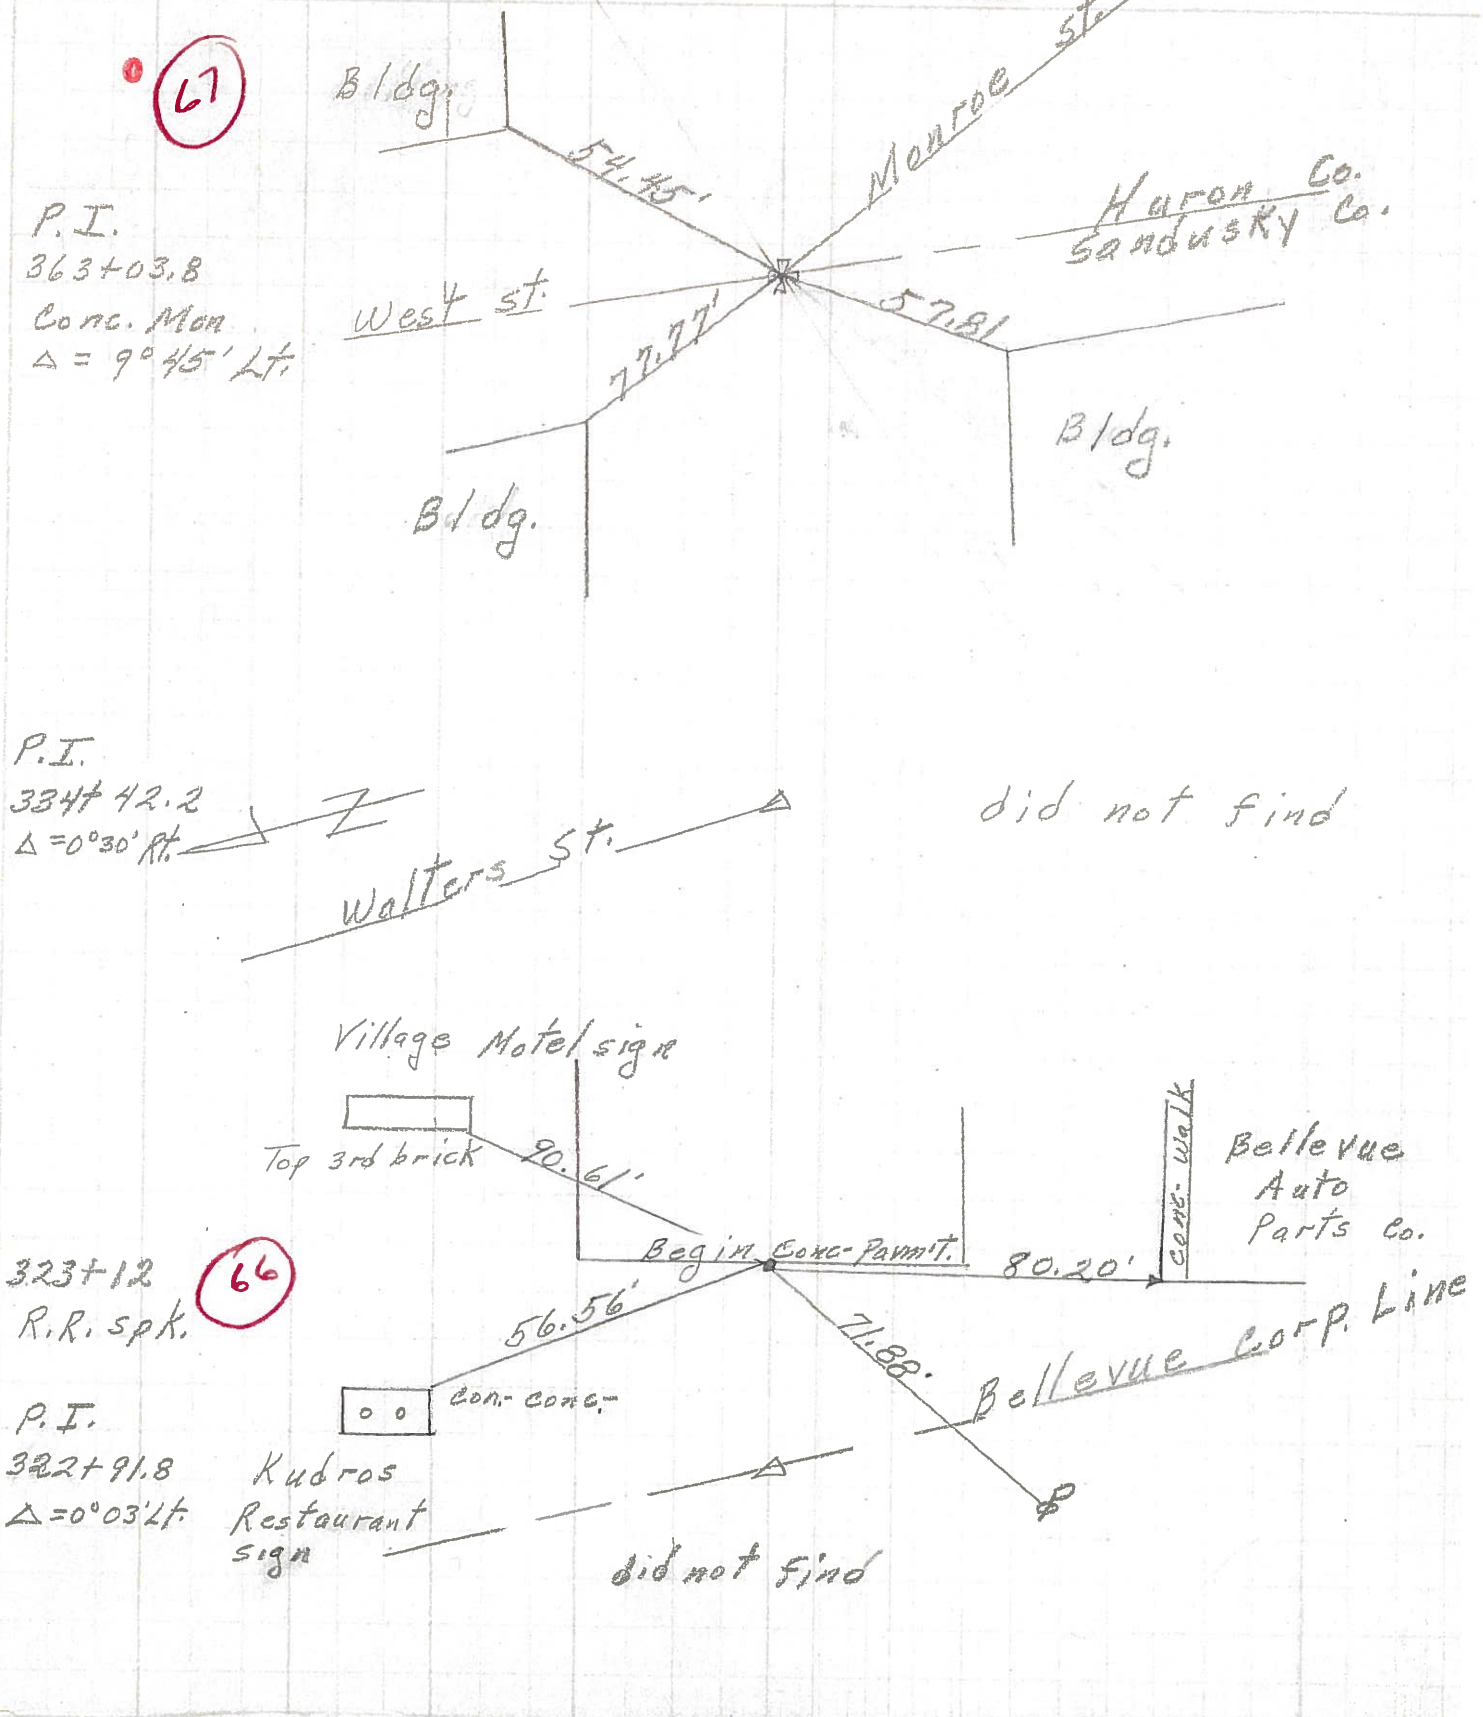 67
Bldg.
54.45'
Monroe St.
Huron Co.
Sandusky Co.
P.I.
363+03.8
Conc. Mon
Δ = 9°45' Lt.
West St.
77.77'
57.81
Bldg.
Bldg.
P.I.
334+42.2
Δ=0°30' Rt.
Z
Walters St.
did not find
Village Motel sign
Top 3rd brick
90.61'
conc- walk
Bellevue
Auto
Parts Co.
Begin Conc-Pavm't.
80.20'
323+12
R.R. spk.
66
56.56'
71.88'
Bellevue Corp. Line
cor.- conc.-
P.I.
322+91.8
Δ=0°03'Lt.
Kudros
Restaurant
sign
did not find